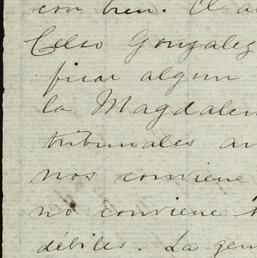 con bien. El
Celso Gonzalez
ficar algun
la Magdalen
tribunales
nos conviene
no conviene
débiles. La gen